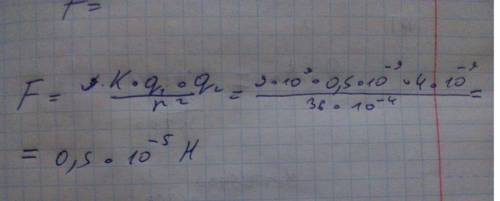 F =
F = 9·K·q₁·q₂ / r² = 9·10⁹·0,5·10⁻⁹·4·10⁻⁹ / 36·10⁻⁴ =
= 0,5·10⁻⁵ Н